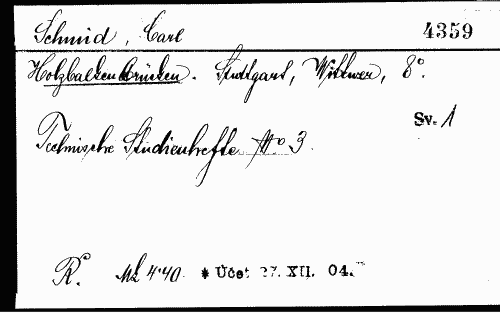 Schmid, Carl 4359
Holzbalkenbrücken. Stuttgart, Wittwer, 8°.
Sv. 1
Technische Studienhefte No 3.
R. Mk 4·40. * Účet 27. XII. 04.